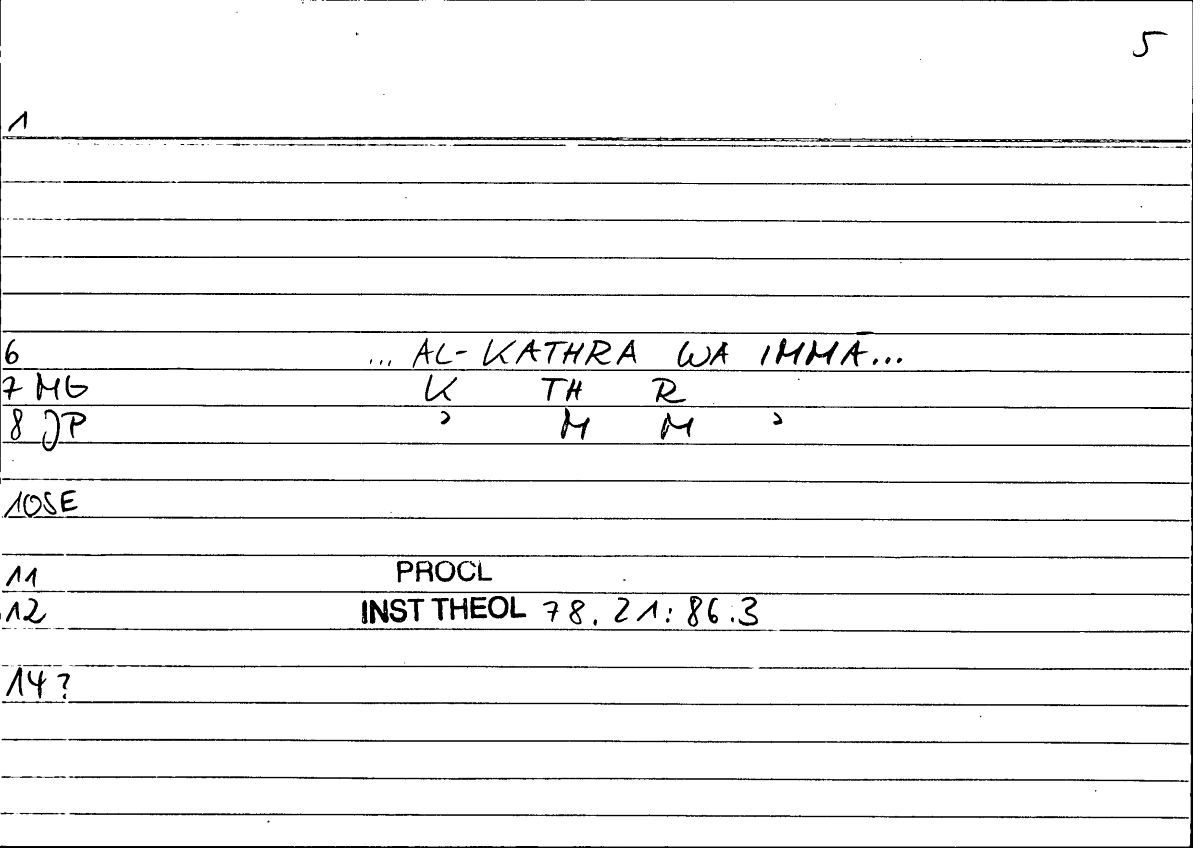 5
1
6 ... AL-KATHRA WA IMMĀ...
7 MG K TH R
8 JP ʾ M M ʾ
10SE
11 PROCL
12 INST THEOL 78.21:86.3
14?